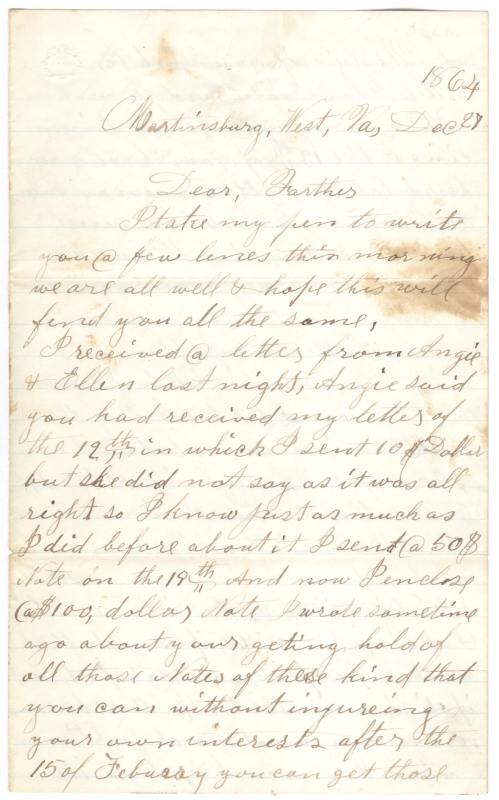 1864
Martinsburg, West, Va, Dec 27
Dear, Farther
I take my pen to write
you @ few lines this morning
we are all well & hope this will
find you all the same,
I received @ letter from Angie
& Ellen last night, Angie said
you had received my letter of
the 12th in which I sent 10$ Dollar
but she did not say as it was all
right so I know just as much as
I did before about it I sent @ 50$
Note on the 19th And now I enclose
@ $100, dollar Note I wrote sometime
ago about your geting hold of
all those Notes of these kind that
you can without injureing
your own interests after the
15 of Feburay you can get those